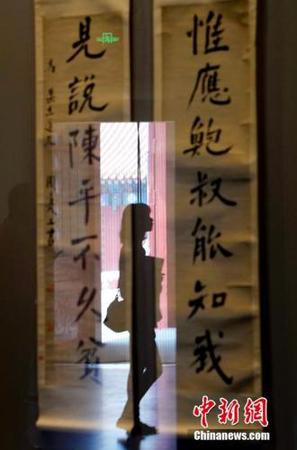 惟應鮑叔能知我
見說陳平不久貧
中新网
Chinanews.com